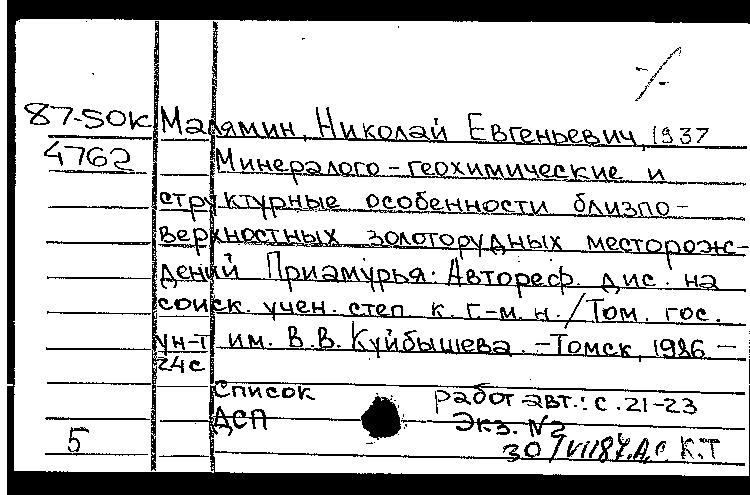 -/-
87-50к Малямин, Николай Евгеньевич, 1937
4762 Минералого-геохимические и
структурные особенности близпо-
верхностных золоторудных месторож-
дений Приамурья: Автореф. дис. на
соиск. учен. степ. к. г.-м. н. / Том. гос.
ун-т им. В.В. Куйбышева. -Томск, 1986 -
24с
Список работ авт.: с. 21-23
ДСП Экз. №2
5 30/VII87. К.Т